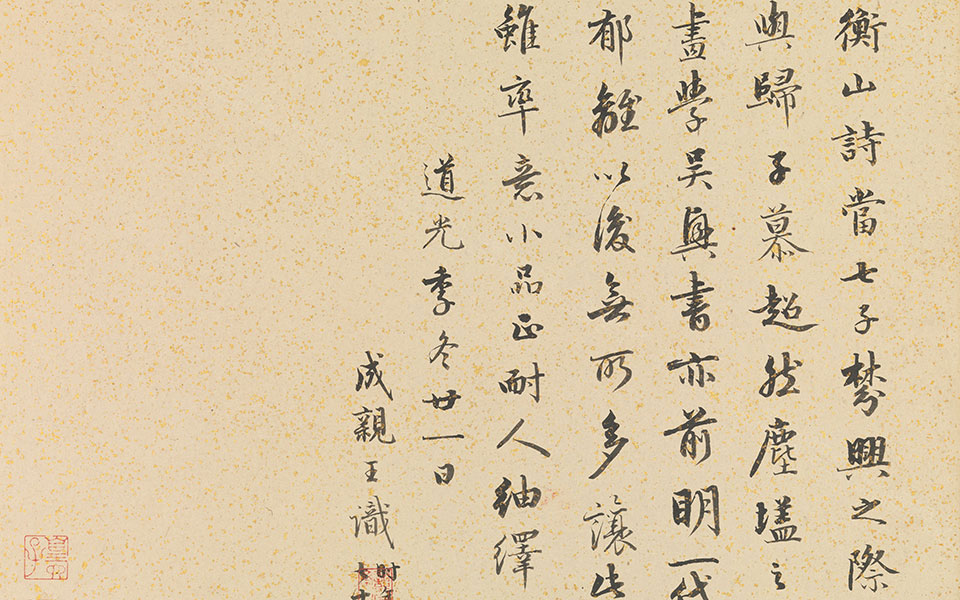 衡山詩當七子棼興之際
與歸子慕超然塵壒之
畫學吳興書亦前明一代
郁離以後無所多讓此
雖率意小品正耐人紬繹
道光季冬廿一日
成親王識
时年